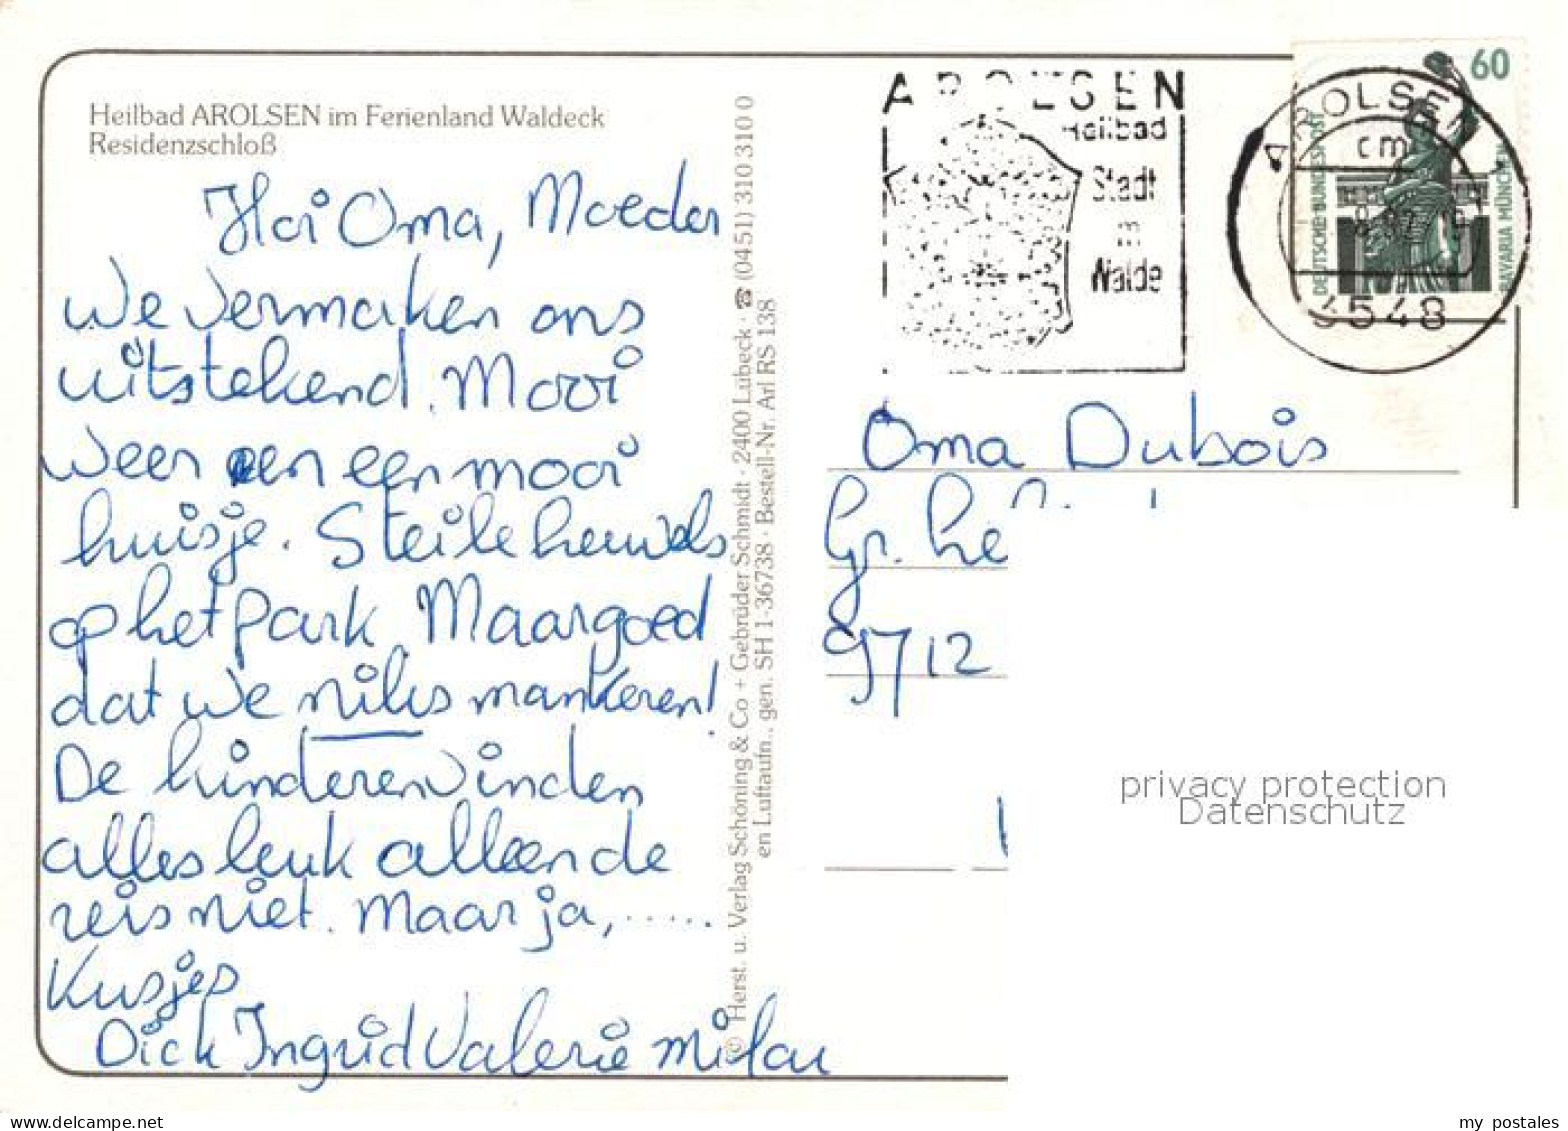 Heilbad AROLSEN im Ferienland Waldeck
Residenzschloß
Hoi Oma, Moeder
We vermaken ons
uitstekend. Mooi
weer en een mooi
huisje. Steile heuvels
op het park. Maar goed
dat we niks mankeren!
De kinderen vinden
alles leuk alleen de
reis niet. Maar ja, ......
Kusjes
Dick Ingrid Valerie Milou
© Herst. u. Verlag Schöning & Co + Gebrüder Schmidt · 2400 Lübeck · ☎ (0451) 310 310 0
en Luftaufn., gen. SH 1-36738 · Bestell-Nr. Arl RS 138
AROLSEN
Heilbad
Stadt
Walde
60
DEUTSCHE BUNDESPOST
BAVARIA MÜNCHEN
AROLSEN
cm
3548
Oma Dubois
Gr.
9712
privacy protection
Datenschutz
my postales